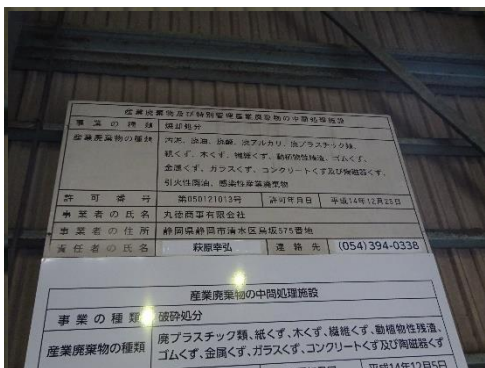 産業廃棄物及び特別管理産業廃棄物の中間処理施設
事業の種類 焼却処分
産業廃棄物の種類 汚泥、廃油、廃酸、廃アルカリ、廃プラスチック類、
紙くず、木くず、繊維くず、動植物性残渣、ゴムくず、
金属くず、ガラスくず、コンクリートくず及び陶磁器くず、
引火性廃油、感染性産業廃棄物
許可番号 第050121013号 許可年月日 平成14年12月23日
事業者の氏名 丸徳商事有限会社
事業者の住所 静岡県静岡市清水区鳥坂575番地
責任者の氏名 萩原幸弘 連絡先 (054)394-0338
産業廃棄物の中間処理施設
事業の種類 破砕処分
産業廃棄物の種類 廃プラスチック類、紙くず、木くず、繊維くず、動植物性残渣、
ゴムくず、金属くず、ガラスくず、コンクリートくず及び陶磁器くず
平成14年12月5日